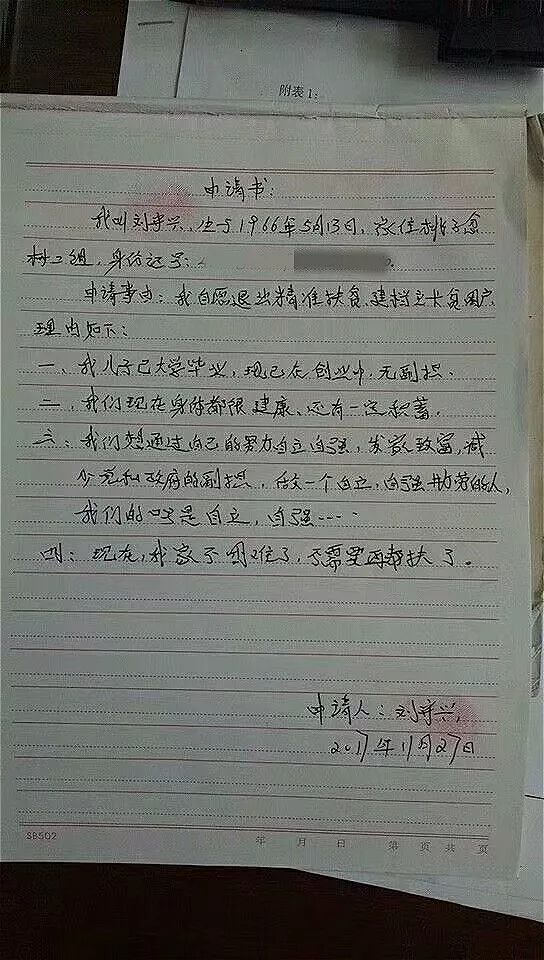 附表1:
申请书:
我叫刘守兴,生于1966年5月13日,家住桃子窝
村二组,身份证号:
申请事由:我自愿退出精准扶贫.建档立卡贫困户,
理由如下:
一、我儿子已大学毕业,现已在创业中,无副担.
二,我们现在身体都很健康、还有一定积蓄,
三:我们想通过自己的努力自立自强,发家致富,减
少党和政府的副担,做一个自立,自强勤劳的人,
我们的口号是自立,自强……
四:现在,我家不困难了,不需要再帮扶了。
申请人:刘守兴
2017年11月27日
SB502 年 月 日 第 页 共 页